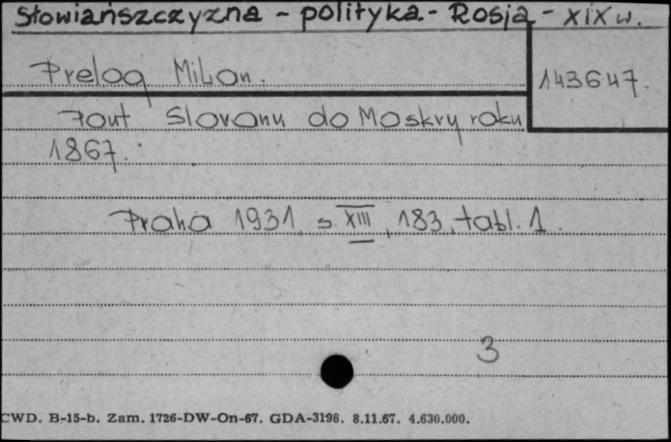 Słowiańszczyzna - polityka - Rosja - XIX w.
Prelog Milan.
143647.
Pout Slovanu do Moskvy roku
1867.
Praha 1931 s. XIII, 183, tabl. 1.
3
CWD. B-15-b. Zam. 1726-DW-On-67. GDA-3198. 8.11.67. 4.630.000.